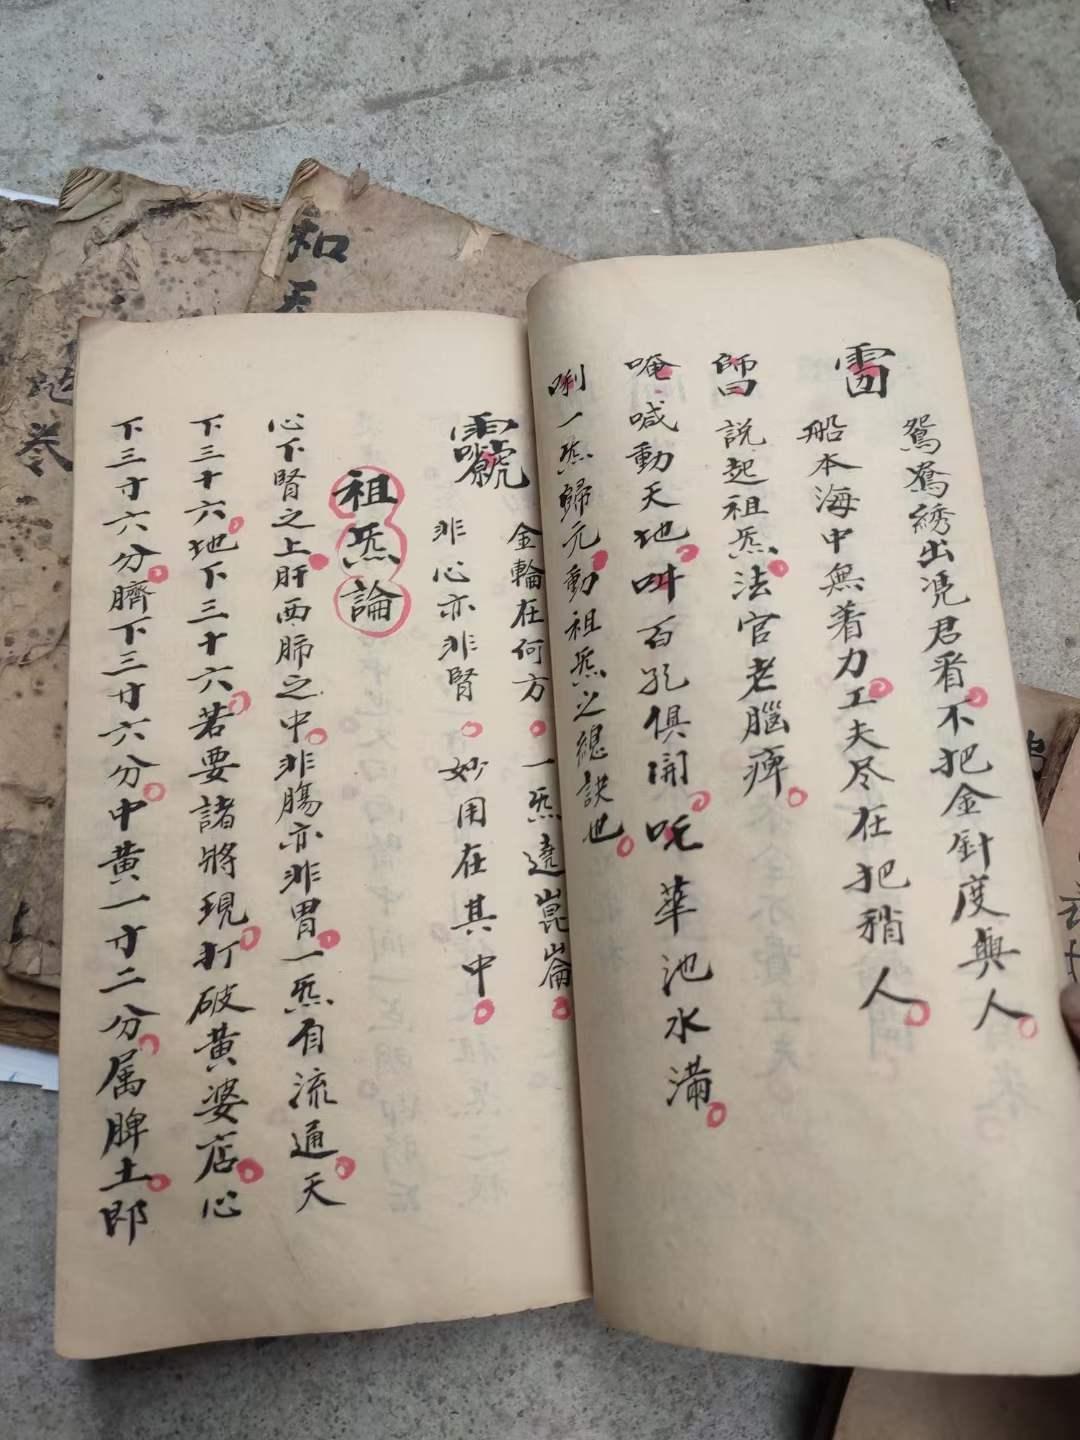 鴛鴦綉出凴君看不把金針度與人
雷
船本海中無着力工夫尽在把稍人
師曰說起祖炁法官老腦痺
唵喊動天地叫百孔俱開吒華池水滿
唎一炁歸元動祖炁之總訣也
金輪在何方一炁遶崑崙
非心亦非腎妙用在其中
祖炁論
心下腎之上肝西肺之中非腸亦非胃一炁有流通天
下三十六地下三十六若要諸將現打破黄婆店心
下三寸六分臍下三寸六分中黄一寸二分属脾土郎
和天
地
卷